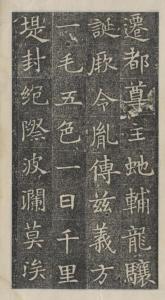 遷都尊王虵輔龍驤
誕厥令胤傳兹義方
一毛五色一日千里
堤封絕際波瀾莫涘